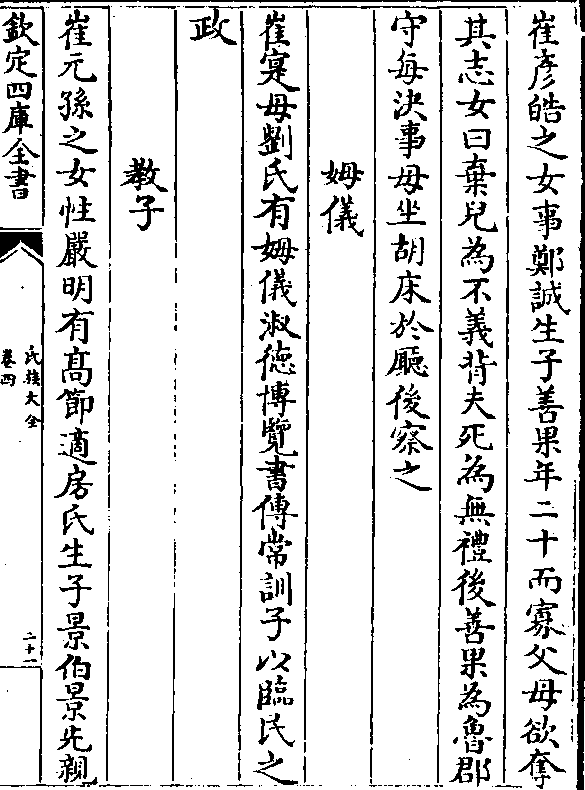 崔彥皓之女事鄭誠生子善果年二十而寡父母欲奪
其志女曰棄兒為不義背夫死為無禮後善果為魯郡
守每決事母坐胡床於廳後察之
姆儀
崔寔母劉氏有姆儀淑德博覽書傳常訓子以臨民之
政
教子
崔元孫之女性嚴明有髙節適房氏生子景伯景先親
欽定四庫全書
氏族大全
卷四
二十一